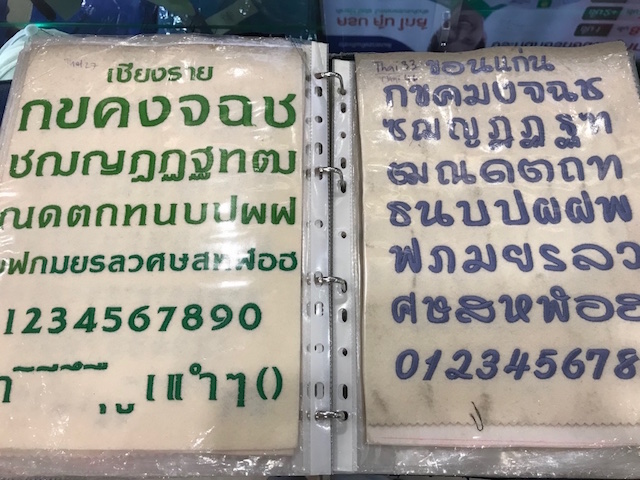 Thai 27
เชียงราย
กขคงจฉช
ซฌญฎฏฐฑฒ
ณดตถทนบปผฝ
ฟภมยรลวศษสหฬอฮ
1234567890
เแำๆ()
Thai 33
ขอนแก่น
กขคฆงจฉช
ซฌญฎฏฐฑ
ฒณดตถท
ธนบปผฝพ
ฟภมยรลว
ศษสหฬอฮ
012345678